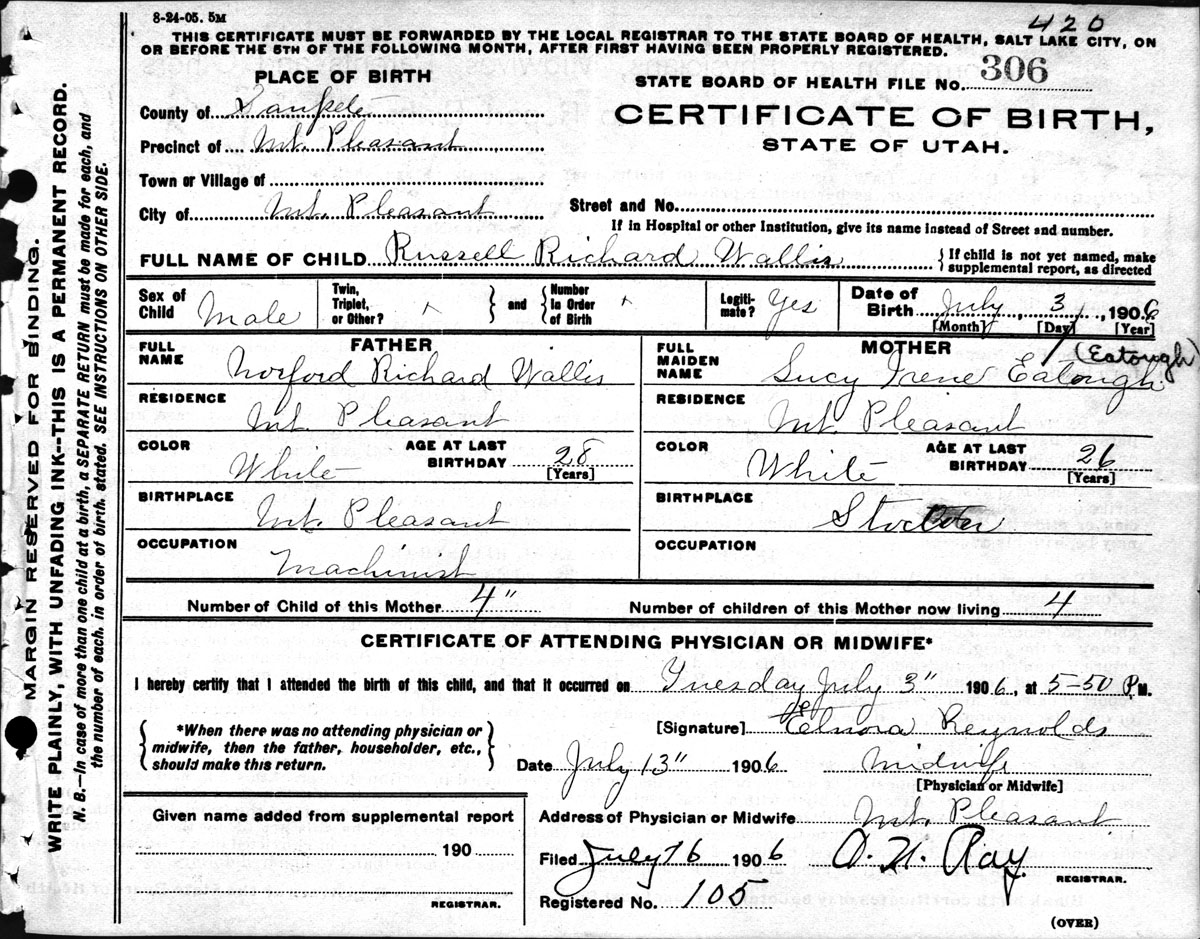 8-24-05. 5M
420
THIS CERTIFICATE MUST BE FORWARDED BY THE LOCAL REGISTRAR TO THE STATE BOARD OF HEALTH, SALT LAKE CITY, ON
OR BEFORE THE 5TH OF THE FOLLOWING MONTH, AFTER FIRST HAVING BEEN PROPERLY REGISTERED.
PLACE OF BIRTH
STATE BOARD OF HEALTH FILE No. 306
County of Sanpete
CERTIFICATE OF BIRTH,
Precinct of Mt. Pleasant
STATE OF UTAH.
Town or Village of
City of Mt. Pleasant
Street and No.
If in Hospital or other Institution, give its name instead of Street and number.
FULL NAME OF CHILD Russell Richard Wallis
{ If child is not yet named, make
supplemental report, as directed
Sex of Child Male
Twin, Triplet, or Other? x } and { Number In Order of Birth x
Legitimate? Yes
Date of Birth July, 3, 1906
[Month] [Day] [Year]
FATHER
MOTHER
FULL NAME Norford Richard Wallis
FULL MAIDEN NAME Lucy Irene Eatough (Eatough)
RESIDENCE Mt. Pleasant
RESIDENCE Mt. Pleasant
COLOR White AGE AT LAST BIRTHDAY 28 [Years]
COLOR White AGE AT LAST BIRTHDAY 26 [Years]
BIRTHPLACE Mt. Pleasant
BIRTHPLACE
OCCUPATION Machinist
OCCUPATION
Number of Child of this Mother 4"
Number of children of this Mother now living 4
CERTIFICATE OF ATTENDING PHYSICIAN OR MIDWIFE*
I hereby certify that I attended the birth of this child, and that it occurred on Tuesday July 3" 1906, at 5-50 P.M.
{ *When there was no attending physician or
midwife, then the father, householder, etc.,
should make this return. }
[Signature] Elnora Reynolds
Date July 13" 1906 Midwife
[Physician or Midwife]
Given name added from supplemental report
190
REGISTRAR.
Address of Physician or Midwife Mt. Pleasant
Filed July 16 1906 O. H. Ray
REGISTRAR.
Registered No. 105
(OVER)
MARGIN RESERVED FOR BINDING.
WRITE PLAINLY, WITH UNFADING INK--THIS IS A PERMANENT RECORD.
N. B.—In case of more than one child at a birth, a SEPARATE RETURN must be made for each, and
the number of each, in order of birth, stated. SEE INSTRUCTIONS ON OTHER SIDE.